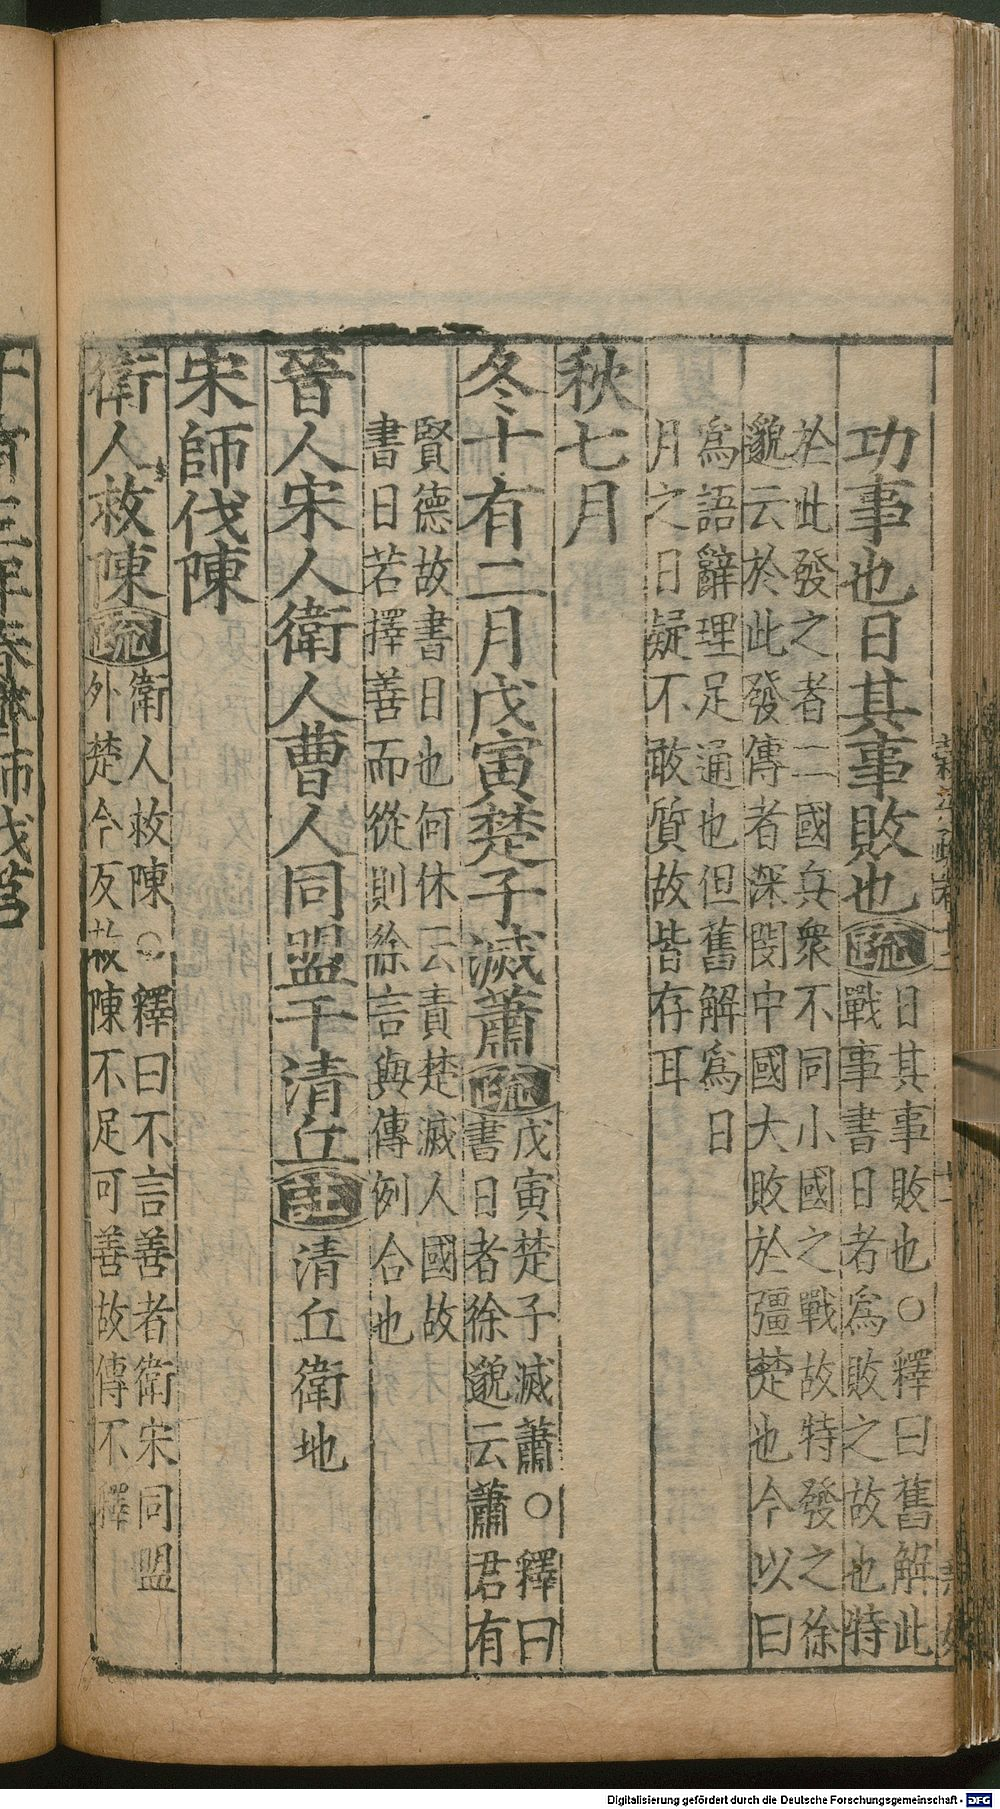 功事也日其事敗也疏日其事敗也○釋曰舊解此
戰事書日者爲敗之故也特
於此發之者二國兵衆不同小國之戰故特發之徐
邈云於此發傳者深閔中國大敗於彊楚也今以曰
爲語辭理足通也但舊解爲日
月之日疑不敢質故皆存耳
秋七月
冬十有二月戊寅楚子滅蕭疏戊寅楚子滅蕭○釋曰
書日者徐邈云蕭君有
賢德故書日也何休云責楚滅人國故
書日若擇善而從則徐言與傳例合也
晉人宋人衛人曹人同盟于清丘注清丘衛地
宋師伐陳
衛人救陳疏衛人救陳○釋曰不言善者衛宋同盟
外楚今反救陳不足可善故傳不釋
Digitalisierung gefördert durch die Deutsche Forschungsgemeinschaft - DFG